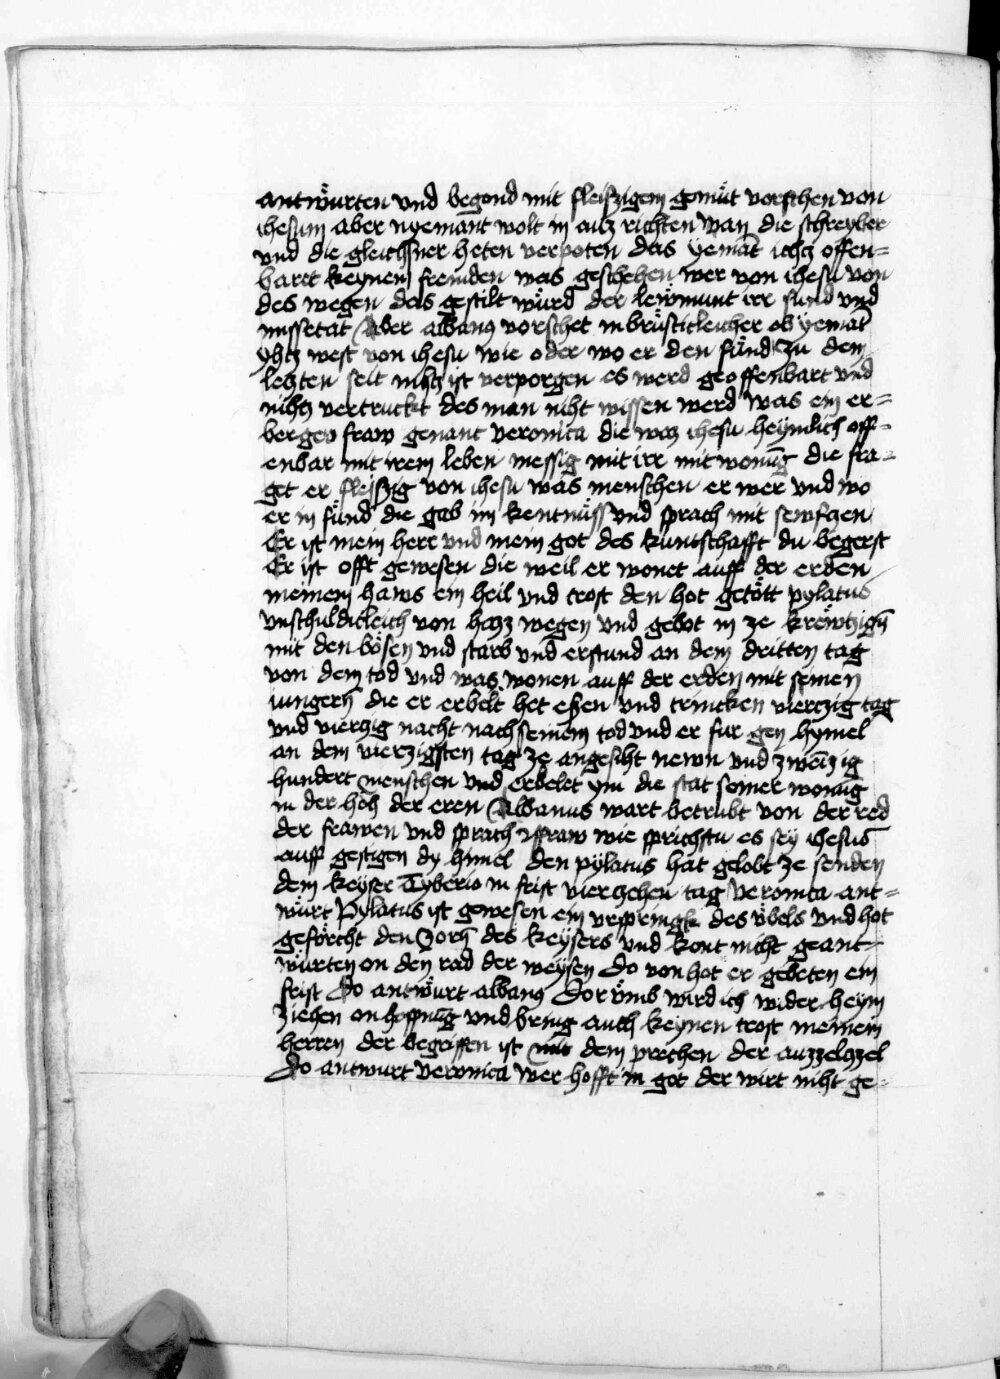 antwürten vnd begond mit fleiszigem gemüt vorschen von
ihesum aber nyemant wolt in auz richten wan die schreyber
vnd die gleichsner heten verpoten das yemāt ichtz offen=
baret keynem fremden was geschehen wer von ihesu von
des wegen das gestilt würd der lewmunt irr sund vnd
missetat Aber albanus vorschet inbrüsticleicher ob yemāt
yhtz west von ihesu wie oder wo er den fünd zu dem
letzten seit nihtz ist verporgen es werd geoffenbart vnd
nihtz vertruckt des man niht wissen werd was ein er=
bergew fraw genant veronica die waz ihesu heymlich off=
enbar mit irem leben messig mit irr mit wonūg die fra=
get er fleiszig von ihesu was menschen er wer vnd wo
er in fünd die gab im kentnüss vnd sprach mit sewfczen
Er ist mein herr vnd mein got des kuntschafft du begerst
Er ist offt gewesen die weil er wonet auff der erden
meinem haws ein heil vnd trost den hot getött pylatus
vnschuldicleich von hazz wegen vnd gebot in ze krewtzigñ
mit den bösen vnd starb vnd erstund an dem dritten tag
von dem tod vnd was wonen auff der erden mit seinen
iungerñ die er erbelt het essen vnd trincken vierczig tag
vnd vierzig nacht nach seinem tod vnd er fur gen hymel
an dem vierzigsten tag ze angesiht newn vnd zweīzig
hundert menschen vnd erbelet ym die stat seiner wonūg
in der höh der eren Albanus wart betrubt von der red
der frawen vnd sprach fraw wie sprichstu es sey ihesus
auff gestigen dy himel den pylatus hat gelobt ze senden
dem keyser Tyberio in frist vierzehen tag veronica ant=
würt Pylatus ist gewesen ein vrspringk des vbels vnd hot
geförcht den zorñ des keysers vnd kont nicht geant=
würten on den rad der weysen do von hot er gebeten ein
frist Do antwürt albanus Dorümb wird ich wider heym
ziehen on hoffnūg vnd bring auch keynen trost meinem
herren der begriffen ist mit dem prechen der auzzelzzel
Do antwurt veronica wer hofft in got der wirt niht ge=